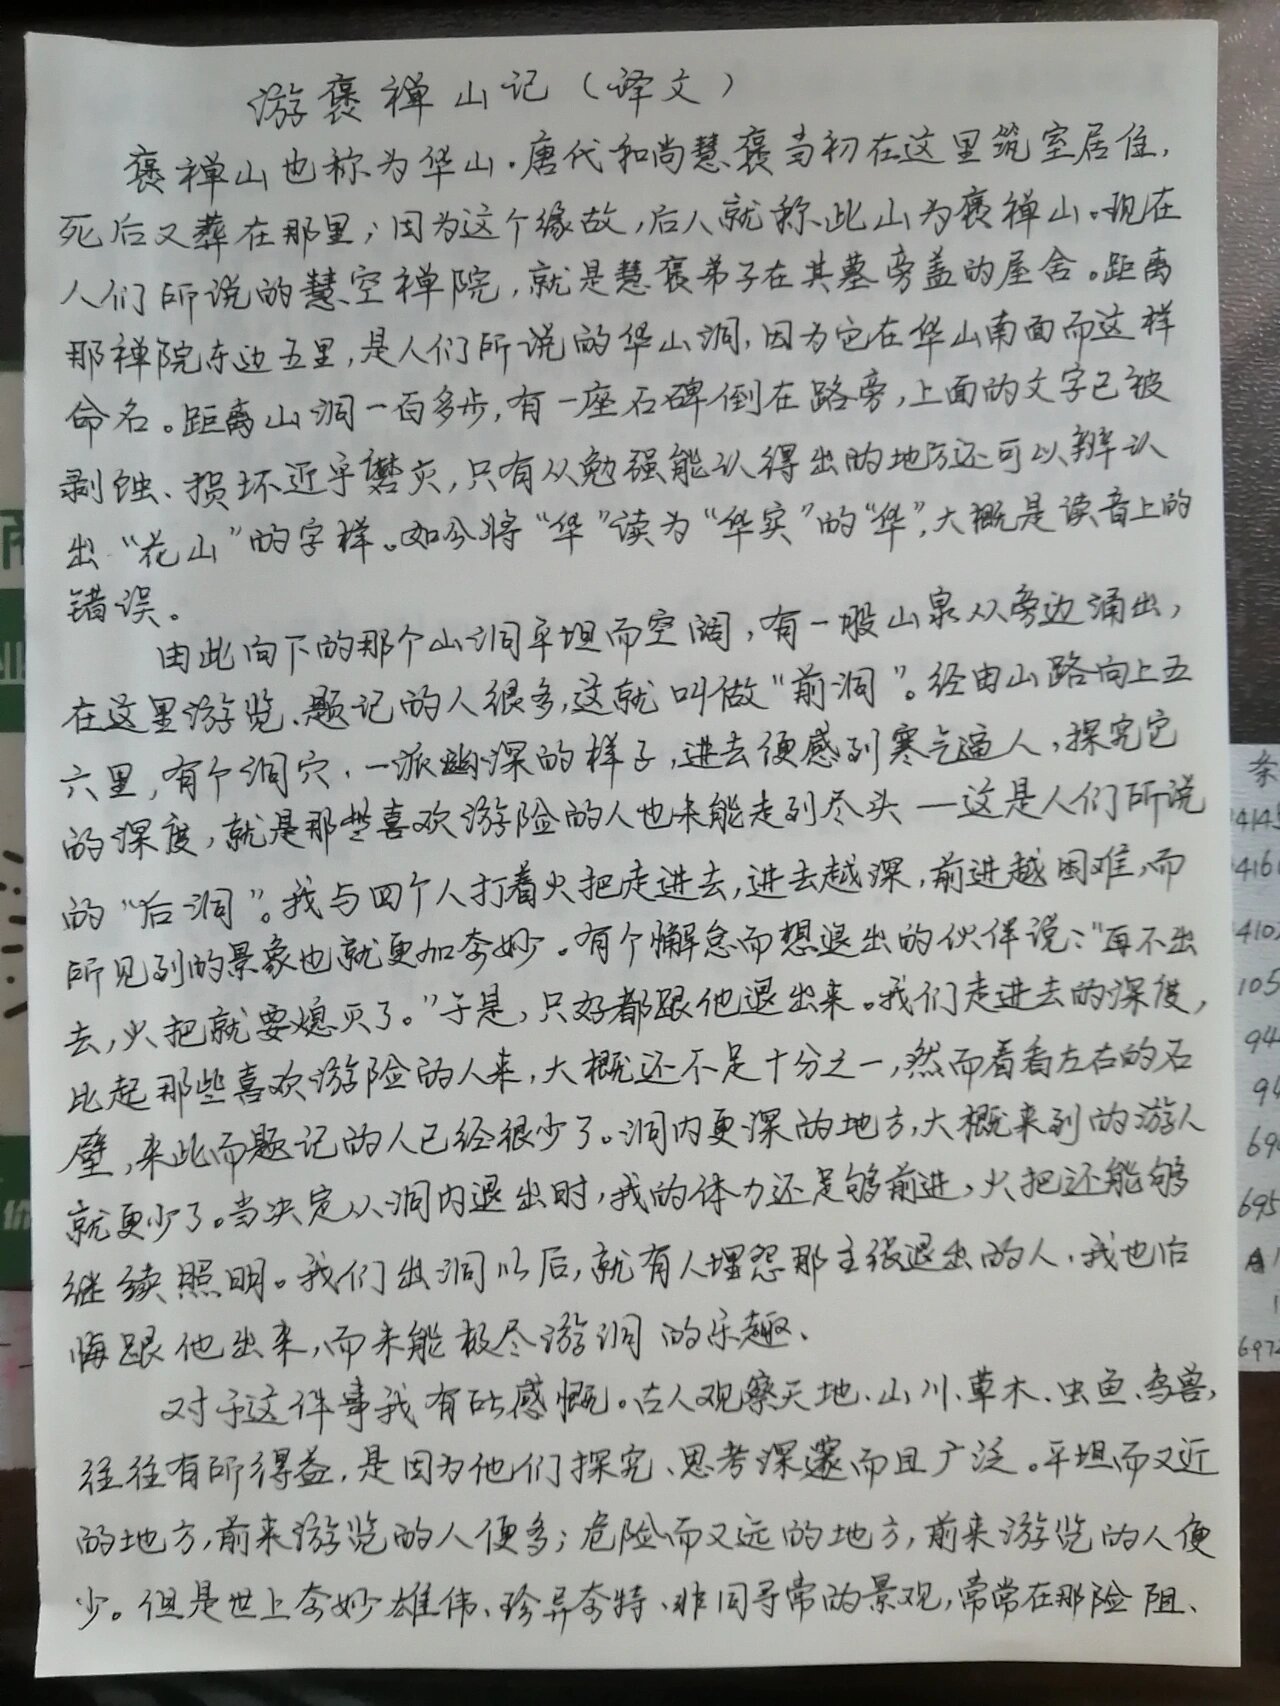 游褒禅山记（译文）
褒禅山也称为华山。唐代和尚慧褒当初在这里筑室居住，
死后又葬在那里；因为这个缘故，后人就称此山为褒禅山。现在
人们所说的慧空禅院，就是慧褒弟子在其墓旁盖的屋舍。距离
那禅院东边五里，是人们所说的华山洞，因为它在华山南面而这样
命名。距离山洞一百多步，有一座石碑倒在路旁，上面的文字已被
剥蚀、损坏近乎磨灭，只有从勉强能认得出的地方还可以辨认
出“花山”的字样。如今将“华”读为“华实”的“华”，大概是读音上的
错误。
由此向下的那个山洞平坦而空阔，有一股山泉从旁边涌出，
在这里游览、题记的人很多，这就叫做“前洞”。经由山路向上五
六里，有个洞穴，一派幽深的样子，进去便感到寒气逼人，探究它
的深度，就是那些喜欢游险的人也未能走到尽头—这是人们所说
的“后洞”。我与四个人打着火把走进去，进去越深，前进越困难，而
所见到的景象也就更加奇妙。有个懈怠而想退出的伙伴说：“再不出
去，火把就要熄灭了。”于是，只好都跟他退出来。我们走进去的深度，
比起那些喜欢游险的人来，大概还不足十分之一，然而看看左右的石
壁，来此而题记的人已经很少了。洞内更深的地方，大概来到的游人
就更少了。当决定从洞内退出时，我的体力还足够前进，火把还能够
继续照明。我们出洞以后，就有人埋怨那主张退出的人，我也后
悔跟他出来，而未能极尽游洞的乐趣、
对于这件事我有所感慨。古人观察天地、山川、草木、虫鱼、鸟兽，
往往有所得益，是因为他们探究、思考深邃而且广泛。平坦而又近
的地方，前来游览的人便多；危险而又远的地方，前来游览的人便
少。但是世上奇妙雄伟、珍异奇特、非同寻常的景观，常常在那险阻、
条
4161
105
94
94
69
695
1
697
价